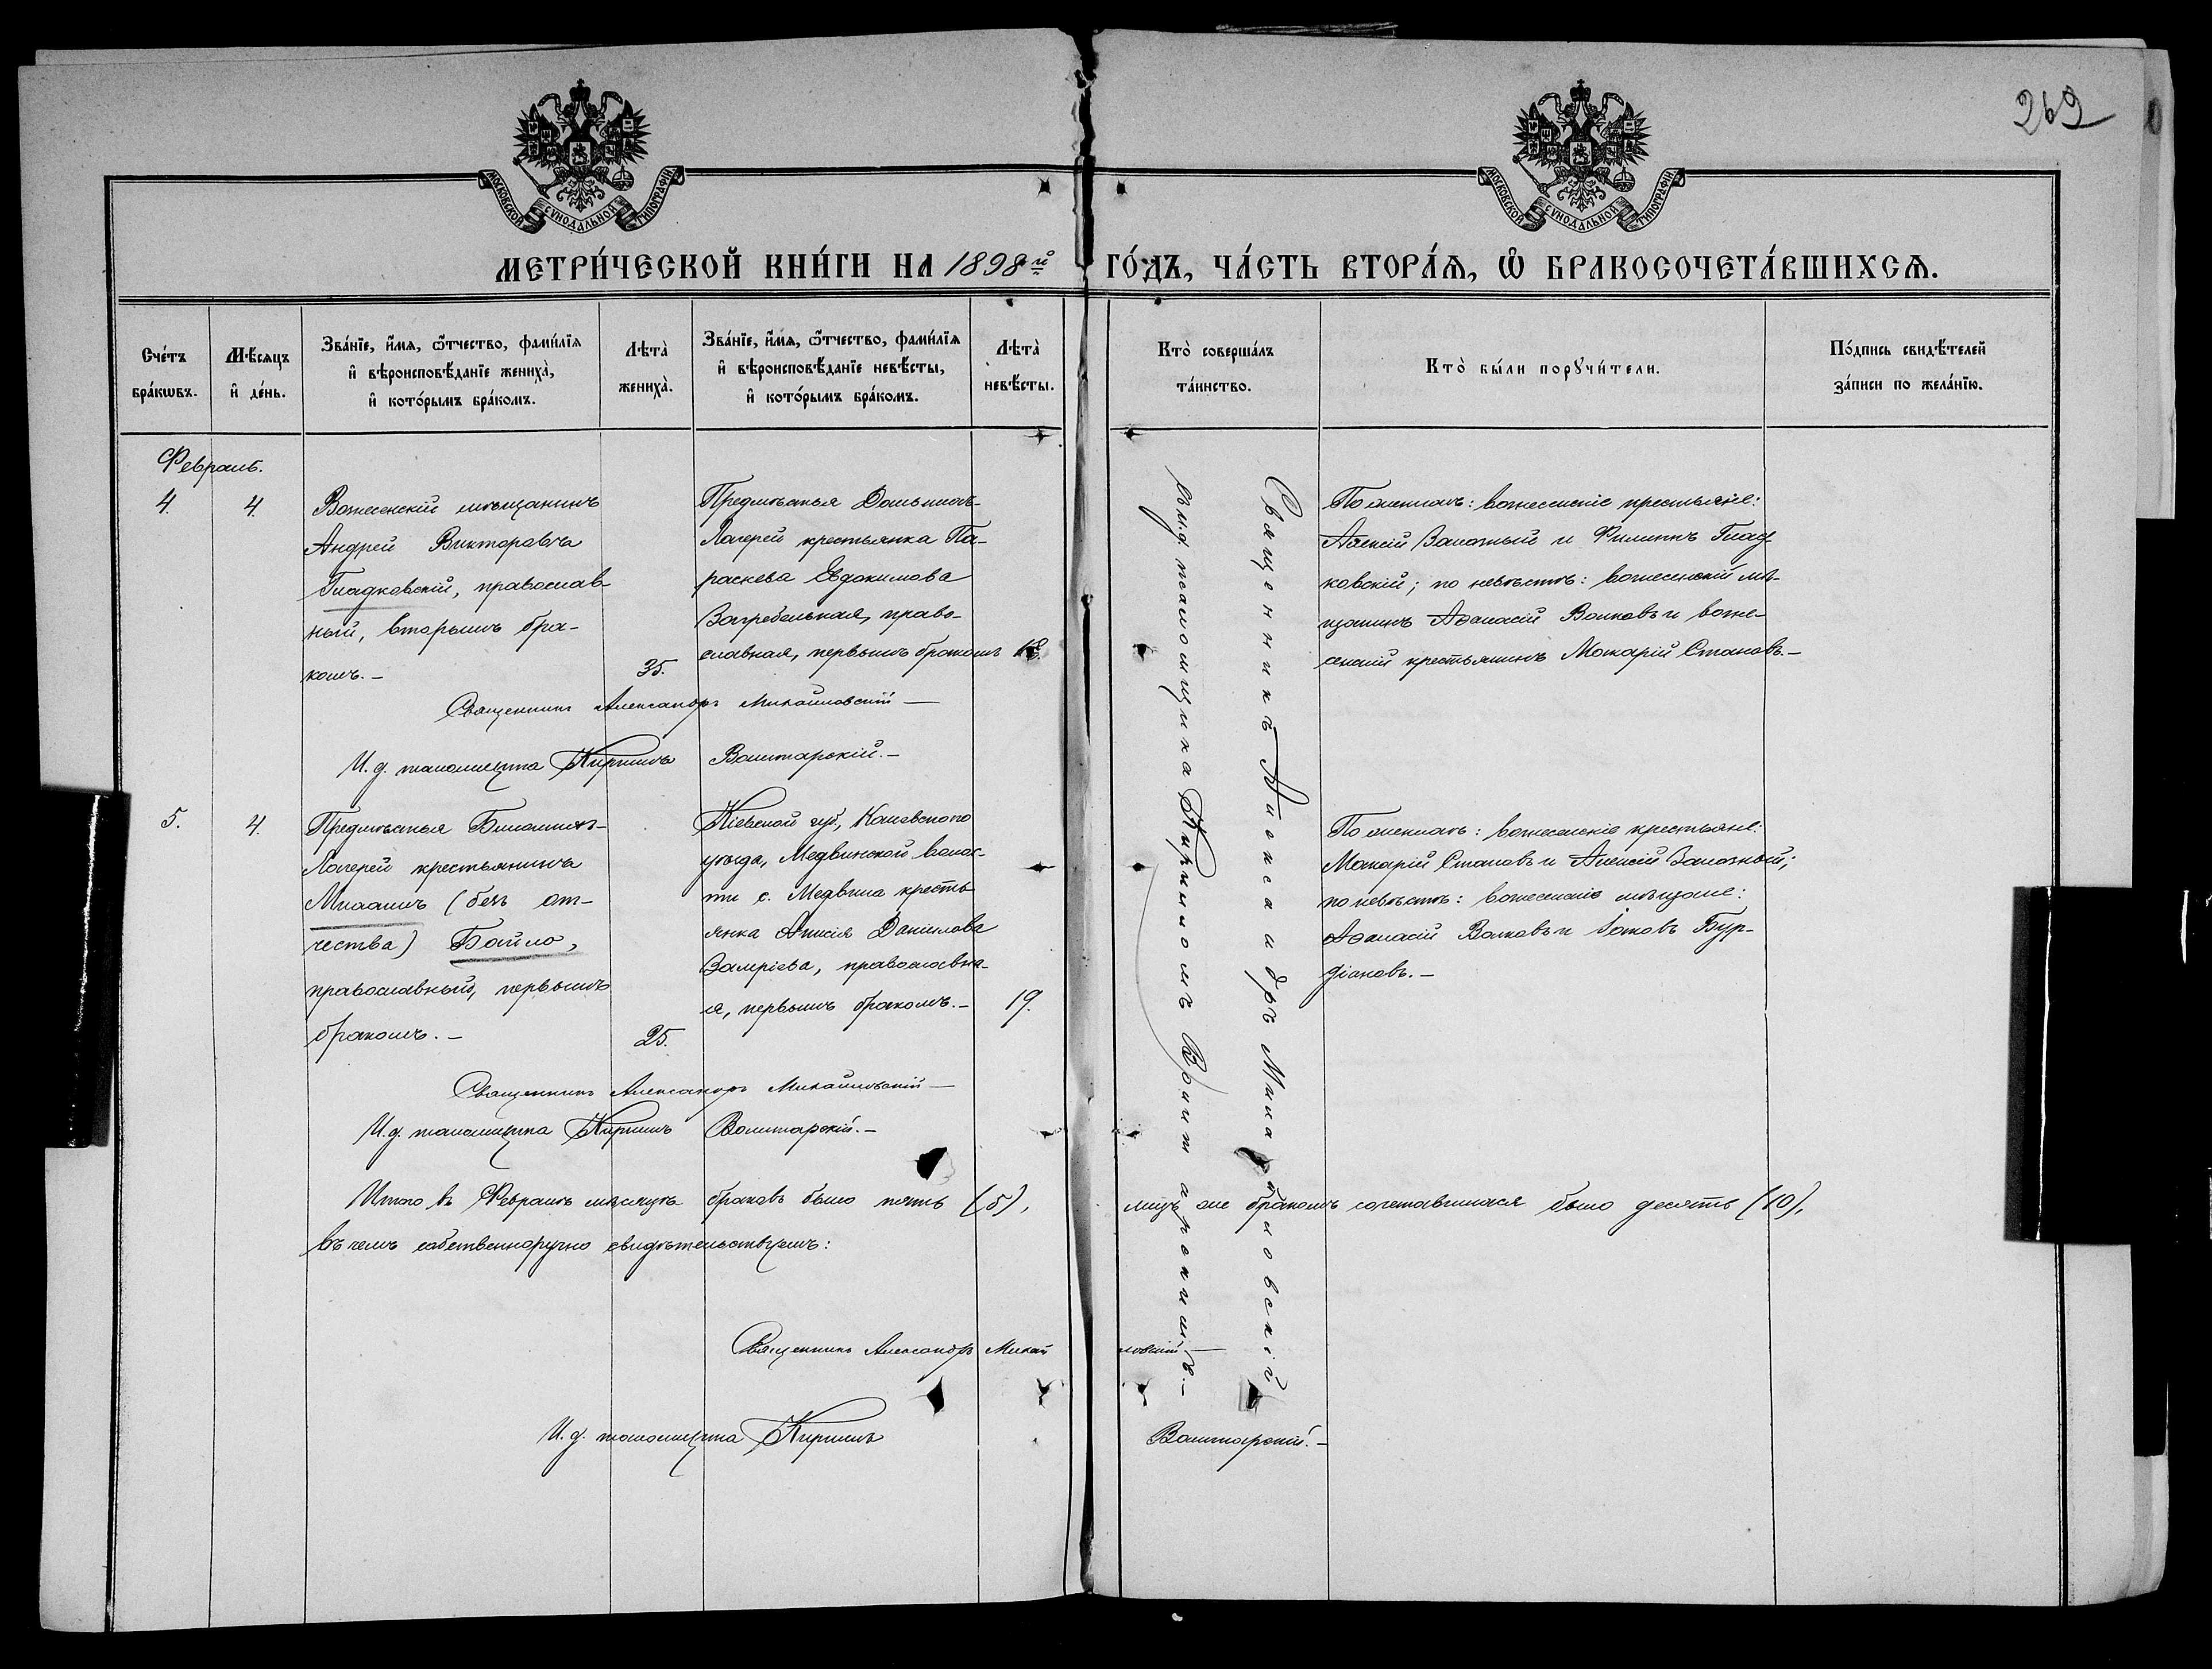 262
МОСКОВСКОЙ СУНОДАЛЬНОЙ ТИПОГРАФІИ
МОСКОВСКОЙ СУНОДАЛЬНОЙ ТИПОГРАФІИ
МЕТРИ́ЧЕСКОЙ КНИ́ГИ НА 1898й ГО́ДЪ, ЧА́СТЬ ВТОРА́Ѧ, Ѽ БРАКОСОЧЕТА́ВШИХСѦ.
Сче́тъ
бра́кѡвъ.
Мѣ́сяцъ
и҆ де́нь.
Зва́нїе, и҆́мѧ, ѻ҆́тчество, фами́лїѧ
и҆ вѣроисповѣ́данїе жениха̀,
и҆ кото́рымъ бра́комъ.
Лѣта̀
жениха̀.
Зва́нїе, и҆́мѧ, ѻ҆́тчество, фами́лїѧ
и҆ вѣроисповѣ́данїе невѣ́сты,
и҆ кото́рымъ бра́комъ.
Лѣта̀
невѣ́сты.
Кто̀ соверша́лъ
та́инство.
Кто̀ бы́ли порꙋчи́тели.
По́дпись свидѣ́телей
за́писи по жела́нїю.
Февраль.
4.
4.
Вознесенскій мѣщанинъ
Андрей Викторовъ
Гладковскій, православ-
ный, вторымъ бра-
комъ.-
35.
Предмѣстья
Лагерей крестьянка Па-
раскева Евдокимова
Загребельная, право-
славная, первымъ бракомъ
18.
Священникъ Александръ Михайловскій
И. д. псаломщика Кириллъ Войтарскій.-
По женихѣ: вознесенскіе крестьяне:
Алексій Залозный и Филиппъ Глад-
ковскій; по невѣстѣ: вознесенскій мѣ-
щанинъ Аѳанасій Волковъ и возне-
сенскій крестьянинъ Макарій Стаховъ.-
5.
4.
Предмѣстья
Лагерей крестьянинъ
(безъ от-
чества) Байло,
православный, первымъ
бракомъ.-
25.
Кіевской губ., Каневскаго
уѣзда, Медвинской волос-
ти с. Медвина кресть-
янка Анисія Даніилова
православна-
я, первымъ бракомъ.-
19.
По женихѣ: вознесенскіе крестьяне:
Макарій Стаховъ и Алексій Залозный;
по невѣстѣ: вознесенскіе мѣщане:
Аѳанасій Волковъ и Іаковъ Бур-
діановъ.-
Священникъ Александръ Михайловскій
И. д. псаломщика Кириллъ Войтарскій.-
Священникъ Александръ Михайловскій
съ и. д. псаломщика Кирилломъ Войтарскимъ.-
Итого въ Февралѣ мѣсяцѣ браковъ было пять (5), лицъ же бракомъ сочетавшихся было десять (10),
въ чемъ собственноручно свидѣтельствуемъ:
Священникъ Александръ Михайловскій
И. д. псаломщика Кириллъ Войтарскій.-